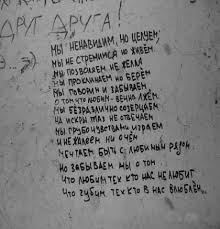 ДРУГ ДРУГА!
МЫ НЕНАВИДИМ, НО ЦЕЛУЕМ,
МЫ НЕ СТРЕМИМСЯ НО ЖИВЁМ
МЫ ПОЗВОЛЯЕМ, НЕ ЖЕЛАЯ
МЫ ПРОКЛИНАЕМ НО БЕРЁМ
МЫ ГОВОРИМ И ЗАБЫВАЕМ
О ТОМ ЧТО ЛЮБИМ - ВЕЧНО ЛЖЁМ.
МЫ БЕЗРАЗЛИЧНО СОЗЕРЦАЕМ
НА ИСКРЫ ГЛАЗ НЕ ОТВЕЧАЕМ
МЫ ГРУБО ЧУВСТВАМИ ИГРАЕМ
И НЕ ЖАЛЕЕМ НИ О ЧЁМ
МЕЧТАЕМ БЫТЬ С ЛЮБИМЫМ РЯДОМ
НО ЗАБЫВАЕМ МЫ О ТОМ
ЧТО ЛЮБИМ ТЕХ КТО НАС НЕ ЛЮБИТ
ЧТО ГУБИМ ТЕХ КТО В НАС ВЛЮБЛЁН.